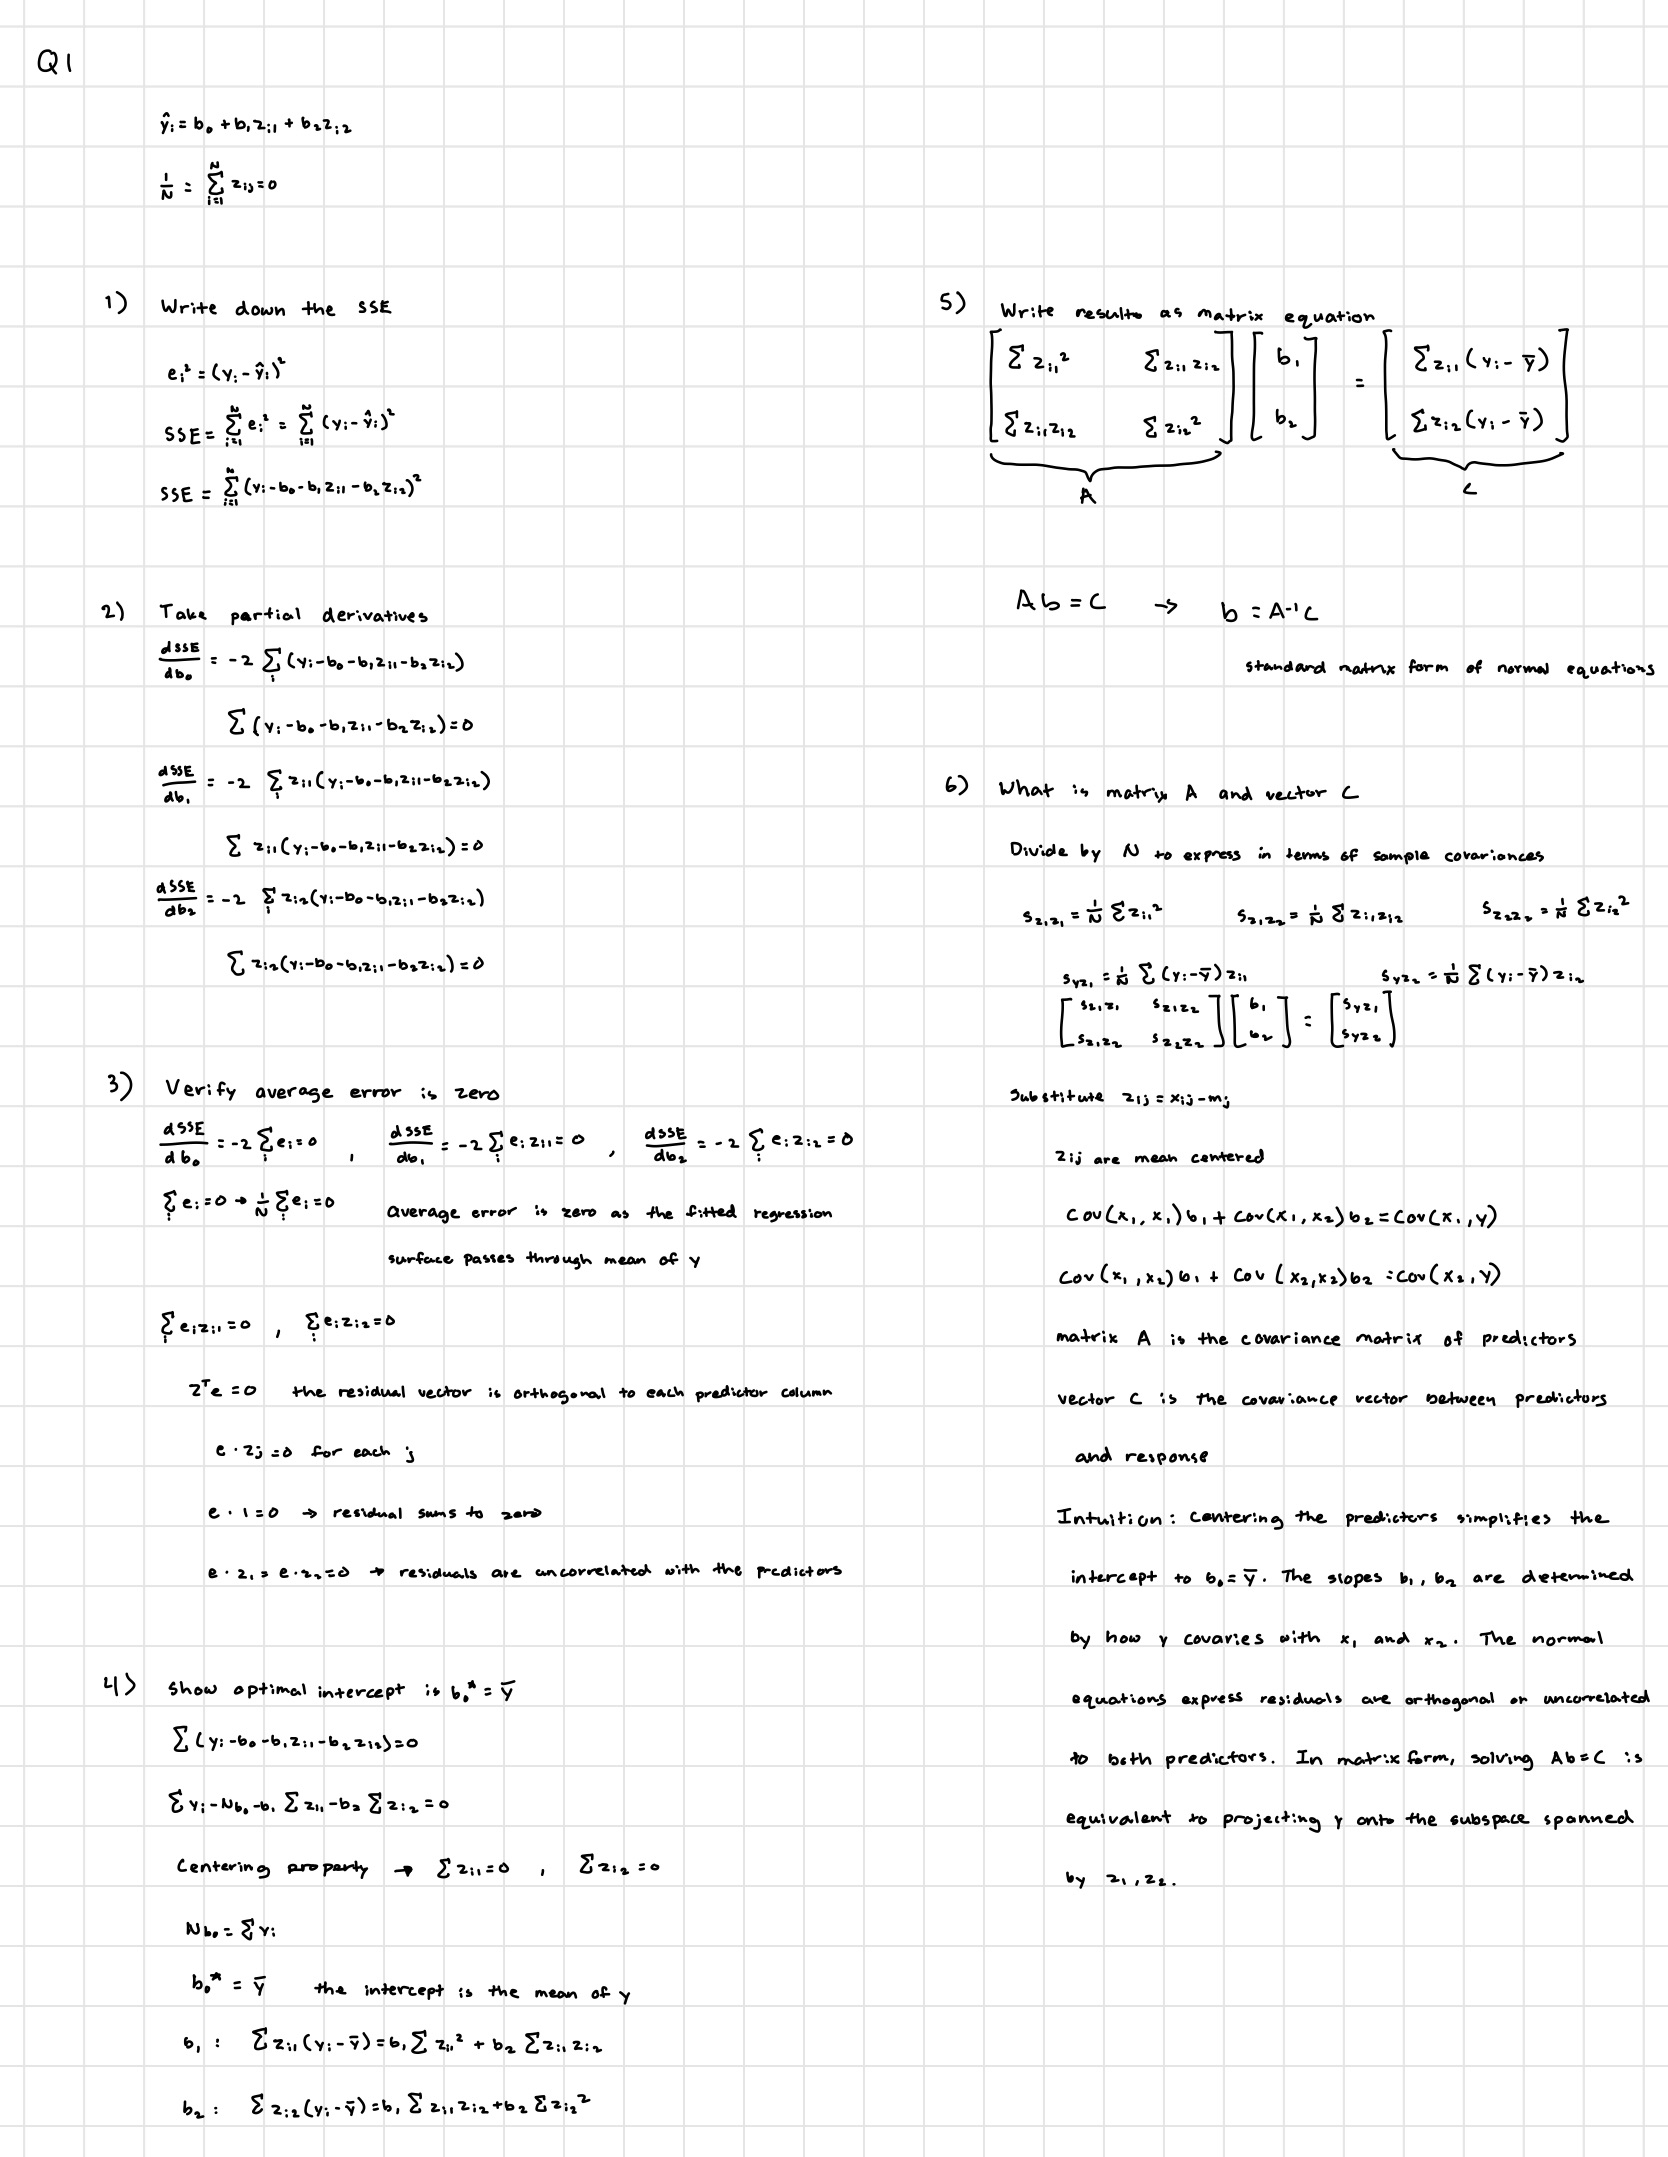 Q1
ŷᵢ = b₀ + b₁zᵢ₁ + b₂zᵢ₂
1/N = ∑ᵢ₌₁ᴺ zᵢⱼ = 0
1) Write down the SSE
eᵢ² = (yᵢ - ŷᵢ)²
SSE = ∑ᵢ₌₁ᴺ eᵢ² = ∑ᵢ₌₁ᴺ (yᵢ - ŷᵢ)²
SSE = ∑ᵢ₌₁ᴺ (yᵢ - b₀ - b₁zᵢ₁ - b₂zᵢ₂)²
2) Take partial derivatives
dSSE/db₀ = -2 ∑ᵢ (yᵢ - b₀ - b₁zᵢ₁ - b₂zᵢ₂)
∑ (yᵢ - b₀ - b₁zᵢ₁ - b₂zᵢ₂) = 0
dSSE/db₁ = -2 ∑ᵢ zᵢ₁(yᵢ - b₀ - b₁zᵢ₁ - b₂zᵢ₂)
∑ zᵢ₁(yᵢ - b₀ - b₁zᵢ₁ - b₂zᵢ₂) = 0
dSSE/db₂ = -2 ∑ᵢ zᵢ₂(yᵢ - b₀ - b₁zᵢ₁ - b₂zᵢ₂)
∑ zᵢ₂(yᵢ - b₀ - b₁zᵢ₁ - b₂zᵢ₂) = 0
3) Verify average error is zero
dSSE/db₀ = -2 ∑ᵢ eᵢ = 0 , dSSE/db₁ = -2 ∑ᵢ eᵢzᵢ₁ = 0 , dSSE/db₂ = -2 ∑ᵢ eᵢzᵢ₂ = 0
∑ᵢ eᵢ = 0 → 1/N ∑ᵢ eᵢ = 0 average error is zero as the fitted regression
surface passes through mean of y
∑ᵢ eᵢzᵢ₁ = 0 , ∑ᵢ eᵢzᵢ₂ = 0
zᵀe = 0 the residual vector is orthogonal to each predictor column
e · zⱼ = 0 for each j
e · 1 = 0 → residual sums to zero
e · z₁ = e · z₂ = 0 → residuals are uncorrelated with the predictors
4) Show optimal intercept is b₀* = ȳ
∑ (yᵢ - b₀ - b₁zᵢ₁ - b₂zᵢ₂) = 0
∑ yᵢ - Nb₀ - b₁ ∑ zᵢ₁ - b₂ ∑ zᵢ₂ = 0
Centering property → ∑ zᵢ₁ = 0 , ∑ zᵢ₂ = 0
Nb₀ = ∑ yᵢ
b₀* = ȳ the intercept is the mean of y
b₁ : ∑ zᵢ₁(yᵢ - ȳ) = b₁ ∑ zᵢ₁² + b₂ ∑ zᵢ₁zᵢ₂
b₂ : ∑ zᵢ₂(yᵢ - ȳ) = b₁ ∑ zᵢ₁zᵢ₂ + b₂ ∑ zᵢ₂²
5) Write results as matrix equation
[∑ zᵢ₁² ∑ zᵢ₁zᵢ₂] [b₁] = [∑ zᵢ₁(yᵢ - ȳ)]
[∑ zᵢ₁zᵢ₂ ∑ zᵢ₂²] [b₂] [∑ zᵢ₂(yᵢ - ȳ)]
A C
Ab = C → b = A⁻¹C
standard matrix form of normal equations
6) What is matrix A and vector C
Divide by N to express in terms of sample covariances
s_z₁z₁ = 1/N ∑ zᵢ₁² s_z₁z₂ = 1/N ∑ zᵢ₁zᵢ₂ s_z₂z₂ = 1/N ∑ zᵢ₂²
s_yz₁ = 1/N ∑ (yᵢ - ȳ) zᵢ₁ s_yz₂ = 1/N ∑ (yᵢ - ȳ) zᵢ₂
[s_z₁z₁ s_z₁z₂] [b₁] = [s_yz₁]
[s_z₁z₂ s_z₂z₂] [b₂] [s_yz₂]
Substitute zᵢⱼ = xᵢⱼ - mⱼ
zᵢⱼ are mean centered
Cov(x₁, x₁)b₁ + Cov(x₁, x₂)b₂ = Cov(x₁, y)
Cov(x₁, x₂)b₁ + Cov(x₂, x₂)b₂ = Cov(x₂, y)
matrix A is the covariance matrix of predictors
vector C is the covariance vector between predictors
and response
Intuition: Centering the predictors simplifies the
intercept to b₀ = ȳ. The slopes b₁, b₂ are determined
by how y covaries with x₁ and x₂. The normal
equations express residuals are orthogonal or uncorrelated
to both predictors. In matrix form, solving Ab = C is
equivalent to projecting y onto the subspace spanned
by z₁, z₂.